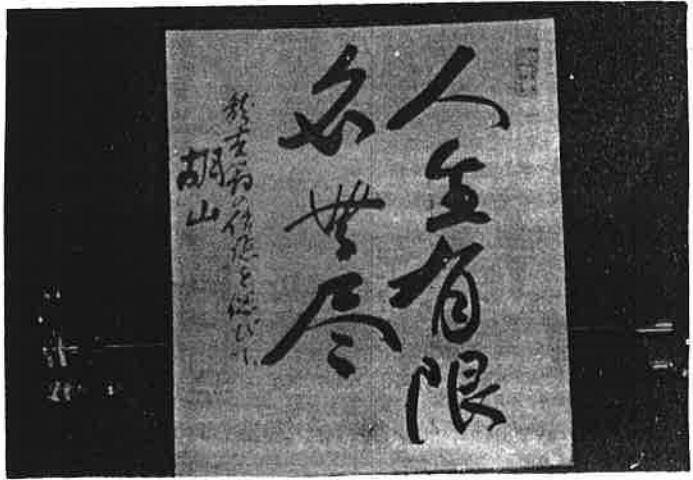 人生有限
名無尽
吉翁の を偲びて
山